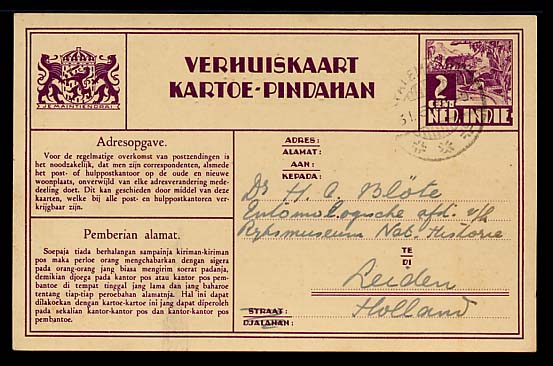 VERHUISKAART
KARTOE-PINDAHAN
JE MAINTIENDRAI
2
CENT
NED. INDIE
Adresopgave.
Voor de regelmatige overkomst van postzendingen is
het noodzakelijk, dat men zijn correspondenten, alsmede
het post- of hulppostkantoor op de oude en nieuwe
woonplaats, onverwijld van elke adresverandering mede-
deeling doet. Dit kan geschieden door middel van deze
kaarten, welke bij alle post- en hulppostkantoren ver-
krijgbaar zijn.
Pemberian alamat.
Soepaja tiada berhalangan sampainja kiriman-kiriman
pos maka perloe orang mengchabarkan dengan sigera
pada orang-orang jang biasa mengirim soerat padanja,
demikian djoega pada kantor pos atau kantor pos pem-
bantoe di tempat tinggal jang lama dan jang baharoe
tentang tiap-tiap peroebahan alamatnja. Hal ini dapat
dilakoekan dengan kartoe-kartoe ini jang dapat diperoleh
pada sekalian kantor-kantor pos dan kantor-kantor pos
pembantoe.
ADRES:
ALAMAT:
AAN:
KEPADA:
Dr H. C. Blöte
Entomologische afd. v/h
Rijksmuseum Nat. Historie
TE
DI
Leiden
Holland
STRAAT:
DJALANAN: